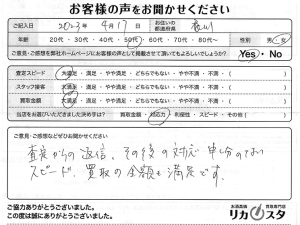 お客様の声をお聞かせください
ご記入日 2023年 4月17日 お住いの都道府県 香川
年齢 20代・30代・40代・50代・60代・70代・80代～ 性別 男・女
ご意見・ご感想を弊社ホームページにお客様の声として掲載させて頂いてもよろしいでしょうか? Yes・No
査定スピード 大満足・満足・やや満足・どちらでもない・やや不満・不満・( )
スタッフ接客 大満足・満足・やや満足・どちらでもない・やや不満・不満・( )
買取金額 大満足・満足・やや満足・どちらでもない・やや不満・不満・( )
当店をお選びいただきました決め手は? 買取金額・対応力・利便性・スピード・その他( )
ご意見・ご感想などぜひお聞かせください
査定からの返信、その後の対応 申し分のない
スピード、買取の金額も満足です。
ご協力ありがとうございました。
この度は誠にありがとうございました。
お酒高価買取専門店
リカスタ